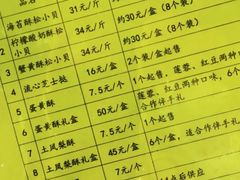 品名
1 海苔酥松小贝 31元/斤 约30元/盒(8个装)
2 柠檬酸奶酥松小贝 34元/斤 约30元/盒(8个装)
3 蟹黄酥松小贝 34元/斤
4 流心芝士挞 16元/盒 2个装/盒起售
5 蛋黄酥 7.5元/个 1个起售,莲蓉、红豆两种口味
6 蛋黄酥礼盒 50元/盒 莲蓉、红豆两种,合作伴手礼
7 土凤梨酥 7.5元/个 1个起售
8 土凤梨酥礼盒 45元/盒 6个/盒,适合作伴手礼
7元/个
后供应